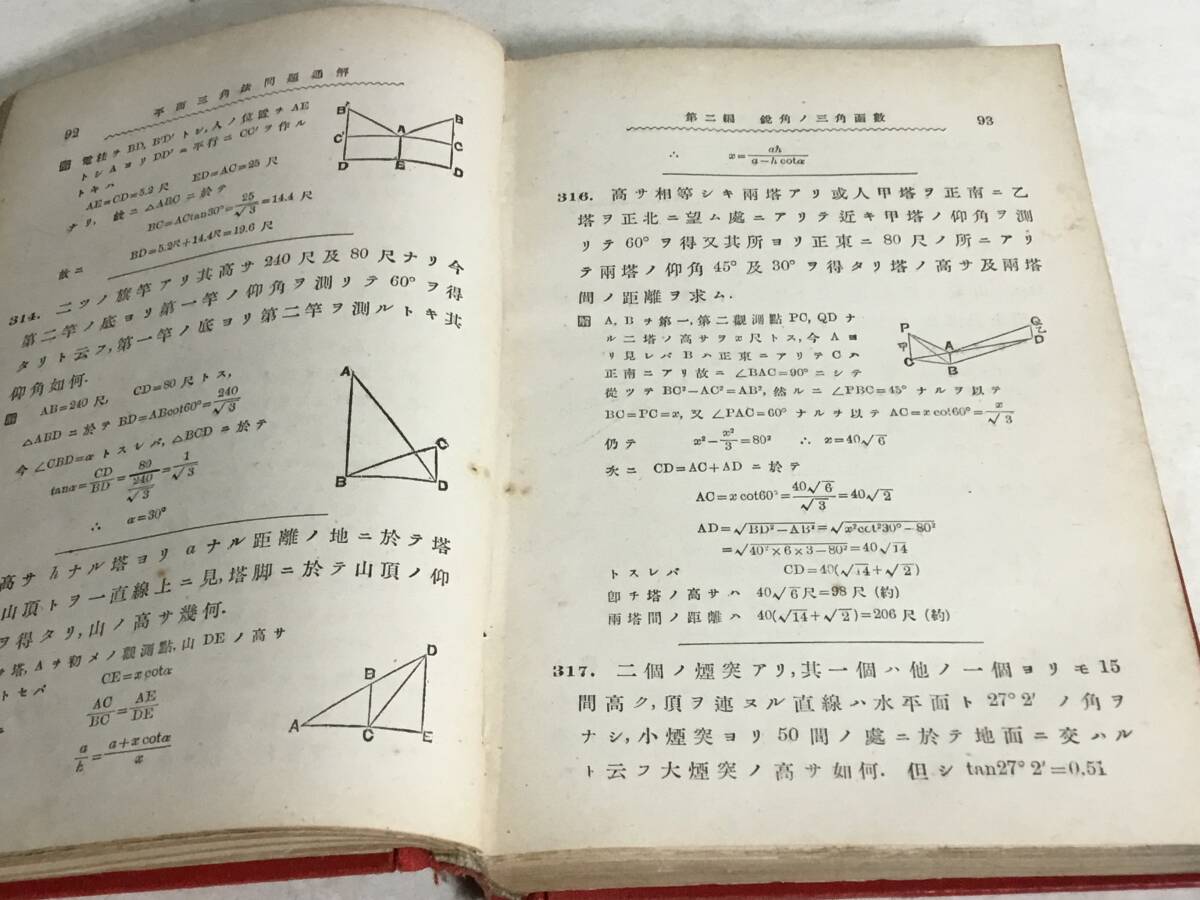 平面三角法問題通解
92
解 電柱ヲ BD, B'D' トシ, 人ノ位置ヲ AE
トシ A ヨリ DD' ニ平行ニ CC' ヲ作ル
トキハ
AE=CD=5.2 尺 ED=AC=25 尺
ナリ, 故ニ △ABC ニ於テ
BC=ACtan30°=25/√3=14.4 尺
故ニ BD=5.2尺+14.4尺=19.6 尺
B'
C'
D
A
E
B
C
D
314. 二ツノ旗竿アリ其高サ 240 尺及 80 尺ナリ今
第二竿ノ底ヨリ第一竿ノ仰角ヲ測リテ 60° ヲ得
タリト云フ, 第一竿ノ底ヨリ第二竿ヲ測ルトキ其
仰角如何.
解 AB=240 尺, CD=80 尺トス,
△ABD ニ於テ BD=ABcot60°=240/√3
今 ∠CBD=α トスレバ, △BCD ニ於テ
tanα=CD/BD=80/(240/√3)=1/√3
∴ α=30°
A
B
C
D
高サ h ナル塔ヨリ a ナル距離ノ地ニ於テ塔
山頂トヲ一直線上ニ見, 塔脚ニ於テ山頂ノ仰
ヲ得タリ, 山ノ高サ幾何.
塔, A ヲ初メノ觀測點, 山 DE ノ高サ
トセバ CE=xcotα
AC/BC=AE/DE
a/h=(a+xcotα)/x
A
B
C
D
E
第二編 鋭角ノ三角函數
93
∴ x=ah/(a−hcotα)
316. 高サ相等シキ兩塔アリ或人甲塔ヲ正南ニ乙
塔ヲ正北ニ望ム處ニアリテ近キ甲塔ノ仰角ヲ測
リテ 60° ヲ得又其所ヨリ正東ニ 80 尺ノ所ニアリ
テ兩塔ノ仰角 45° 及 30° ヲ得タリ塔ノ高サ及兩塔
間ノ距離ヲ求ム.
解 A, B ヲ第一, 第二觀測點 PC, QD ナ
ル二塔ノ高サヲ x 尺トス, 今 A ヨ
リ見レバ B ハ正東ニアリテ C ハ
正南ニアリ故ニ ∠BAC=90° ニシテ
從ツテ BC²−AC²=AB², 然ルニ ∠PBC=45° ナルヲ以テ
BC=PC=x, 又 ∠PAC=60° ナルヲ以テ AC=x cot60°=x/√3
P
甲
C
A
B
Q
乙
D
仍テ x²−x²/3=80² ∴ x=40√6
次ニ CD=AC+AD ニ於テ
AC=x cot60°=40√6/√3=40√2
AD=√(BD²−AB²)=√(x²cot²30°−80²)
=√(40²×6×3−80²)=40√14
トスレバ CD=40(√14+√2)
卽チ塔ノ高サハ 40√6尺=98 尺 (約)
兩塔間ノ距離ハ 40(√14+√2)=206 尺 (約)
317. 二個ノ煙突アリ, 其一個ハ他ノ一個ヨリモ 15
間高ク, 頂ヲ連ヌル直線ハ水平面ト 27° 2' ノ角ヲ
ナシ, 小煙突ヨリ 50 間ノ處ニ於テ地面ニ交ハル
ト云フ大煙突ノ高サ如何. 但シ tan27° 2'=0.51